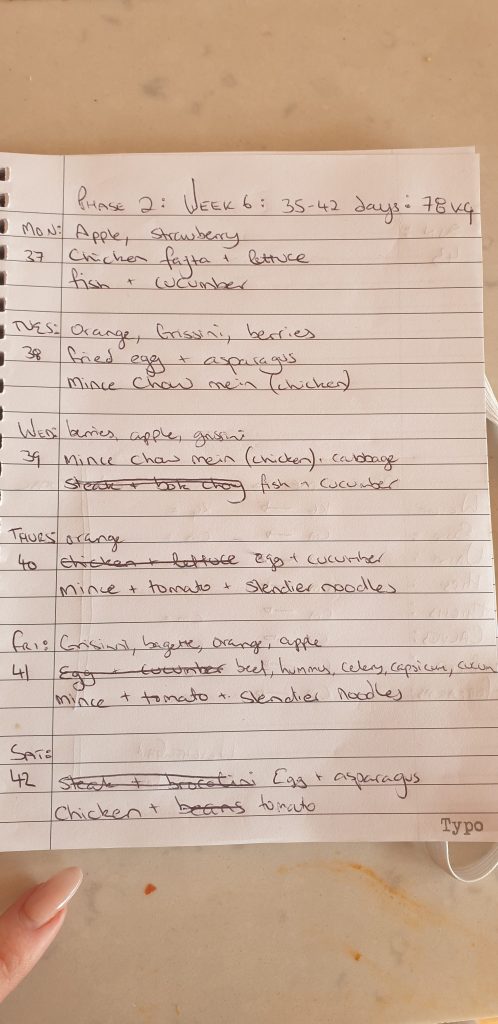 PHASE 2: WEEK 6: 35-42 days: 78kg
MON: Apple, strawberry
37 Chicken fajta + lettuce
fish + cucumber
TUES: Orange, Grissini, berries
38 fried egg + asparagus
Mince Chow mein (chicken)
WED: berries, apple, grissini
39 Mince Chow mein (chicken). cabbage
Steak + bok choy fish + cucumber
THURS: orange
40 chicken + lettuce egg + cucumber
Mince + tomato + Slendier noodles
FRI: Grissini, bagette, orange, apple
41 Egg + cucumber beef, hummus, celery, capsicum, cucum
Mince + tomato + Slendier noodles
SAT:
42 Steak + brocolini Egg + asparagus
Chicken + beans tomato
Typo